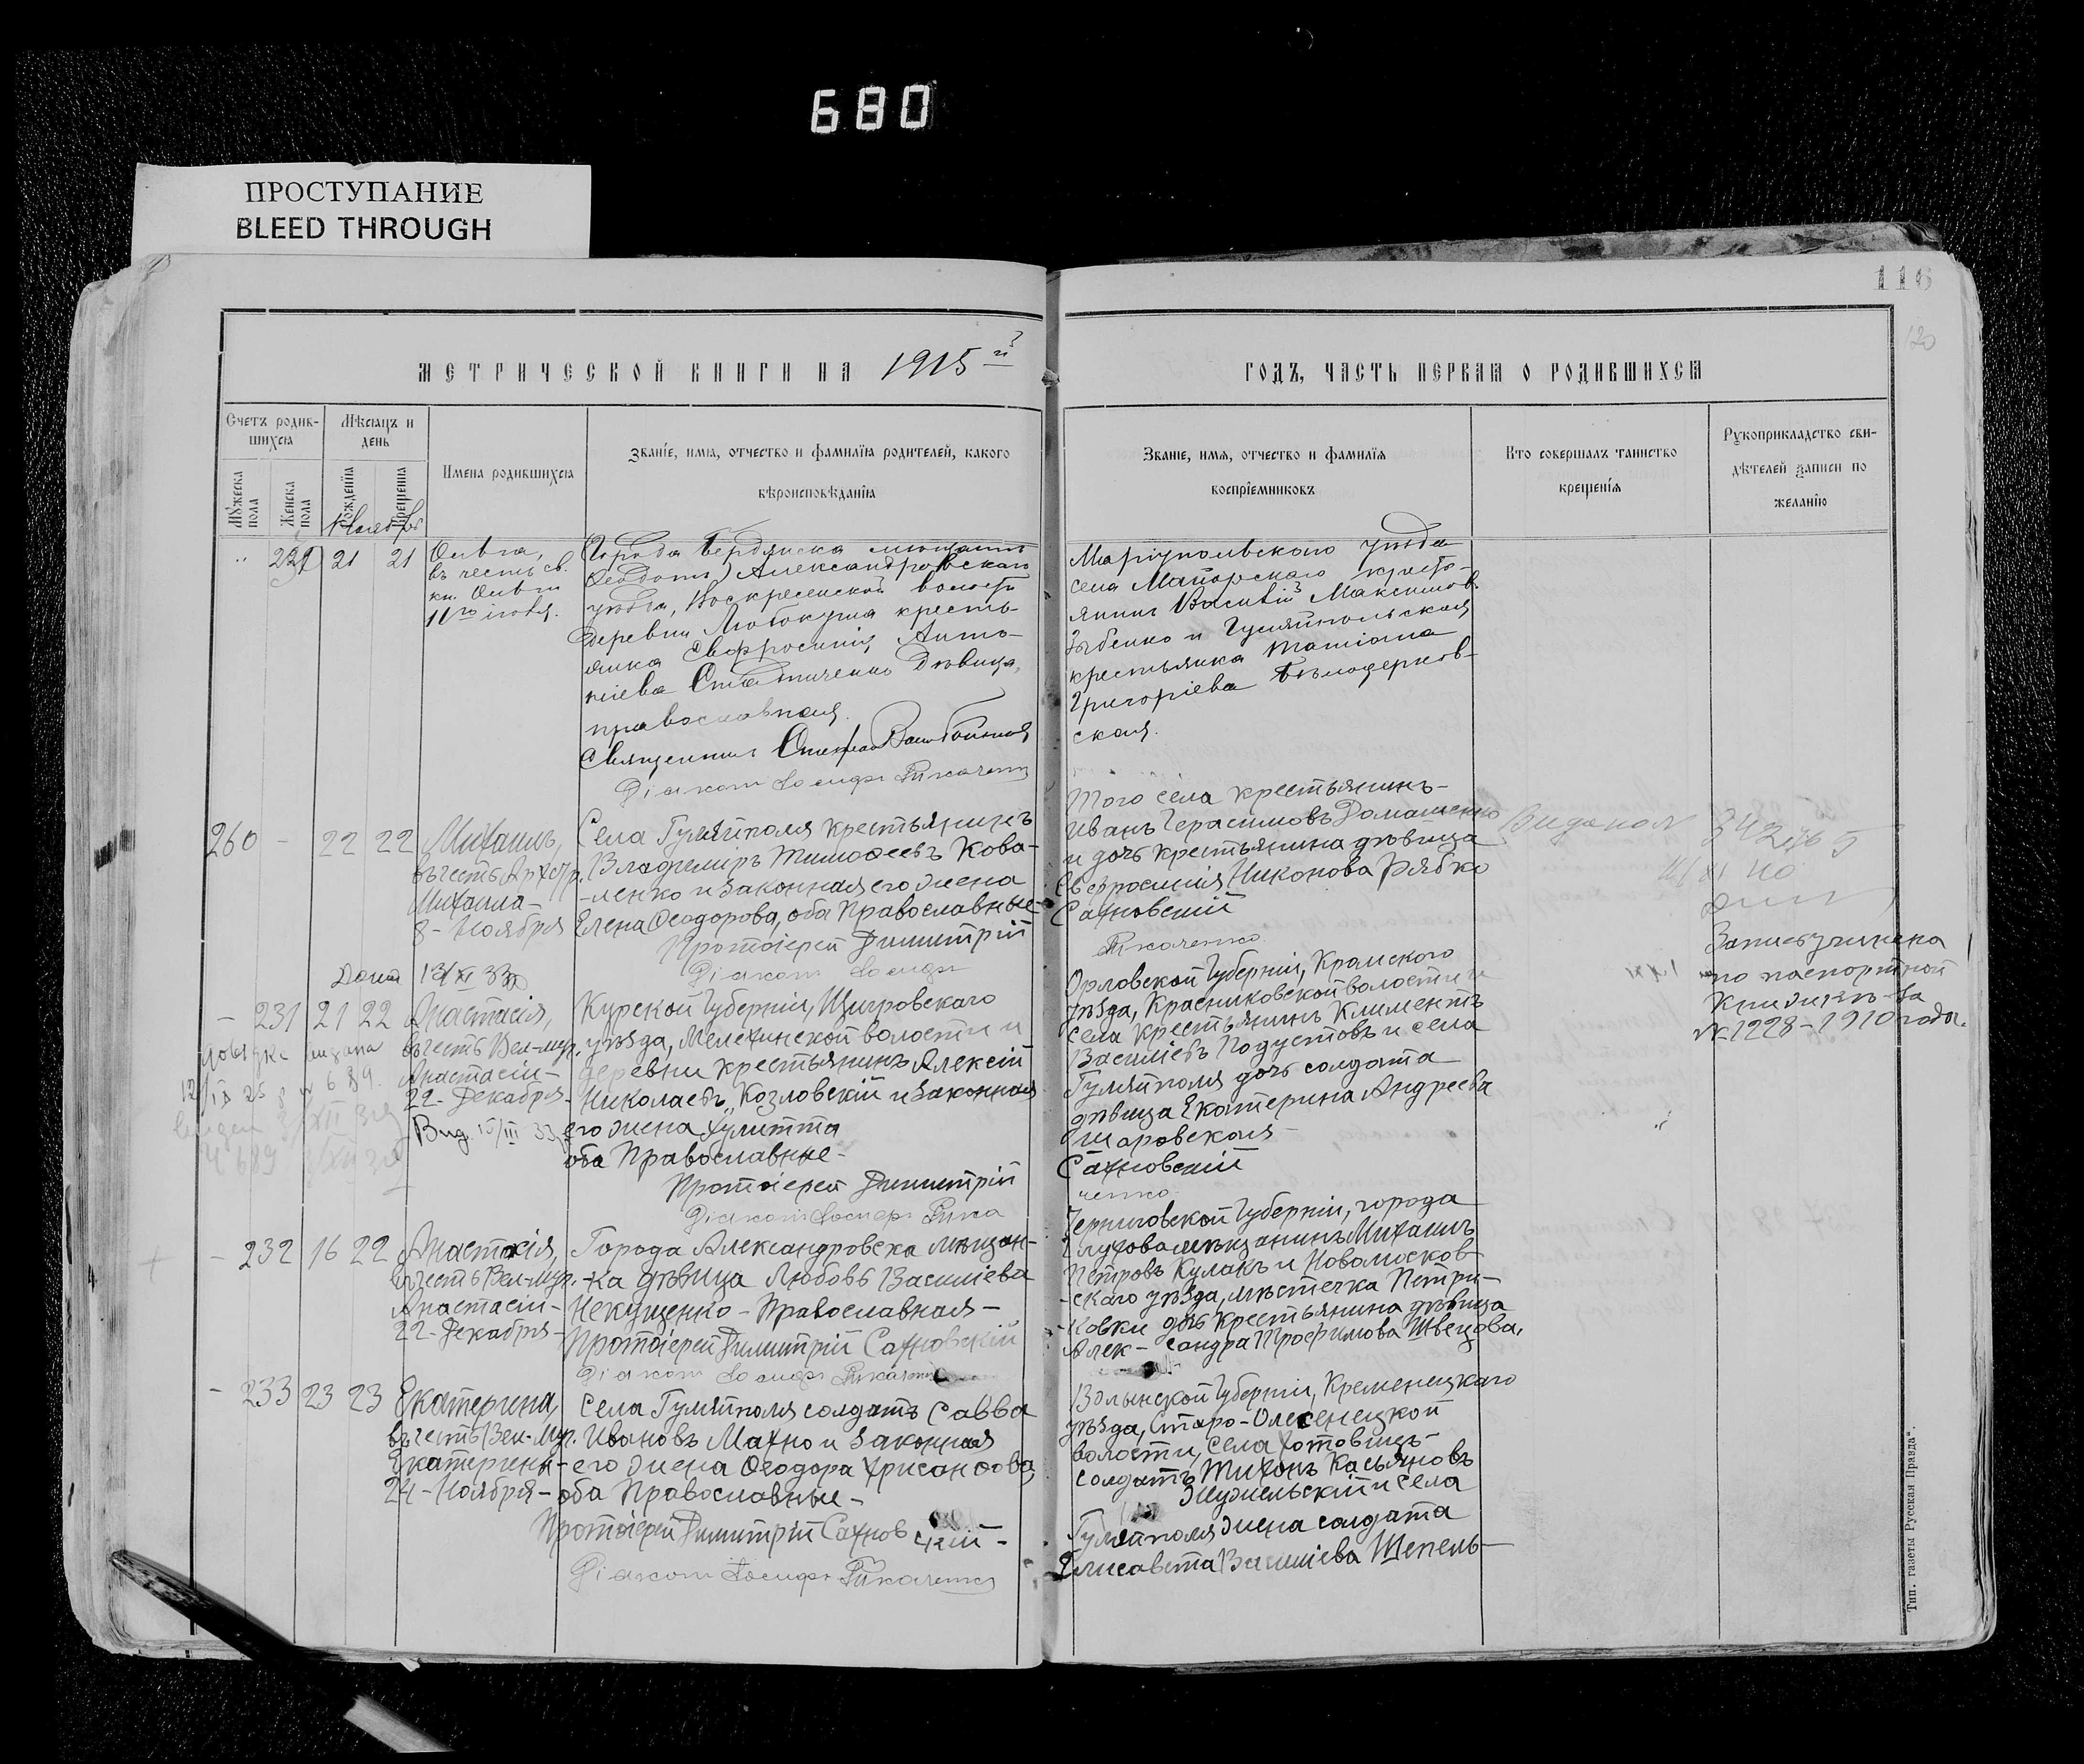 680
ПРОСТУПАНИЕ
BLEED THROUGH
116
120
МЕТРИЧЕСКОЙ КНИГИ НА 1915 й
ГОДЪ, ЧАСТЬ ПЕРВАЯ О РОДИВШИХСЯ
Счетъ родившихся
Мѣсяцъ и день
Имена родившихся
Званіе, имя, отчество и фамилія родителей, какого
вѣроисповѣданія
Званіе, имя, отчество и фамилія
воспріемниковъ
Кто совершалъ таинство
крещенія
Рукоприкладство сви-
дѣтелей записи по
желанію
Мужеска пола
Женска пола
рожденія
крещенія
Ноябрь
21 21
Ольга,
въ честь св.
кн. Ольги
11го іюля.
Города Бердянска мѣщанинъ
Александровскаго
уѣзда, Воскресенской волости
деревни Любокута кресть-
янка Евфросинія Анто-
ніева дѣвица,
православная.
Священникъ
Діаконъ Іосифъ Ткаченко
Маріупольскаго уѣзда
села Майорскаго кресть-
янинъ Василій Максимов.
Зыбенко и Гуляйпольская
крестьянка Татіана
Григоріева Бѣлоцерков-
ская.
260 - 22 22
Михаилъ,
въ честь Арх.
Михаила -
8 - Ноября
Села Гуляйполя крестьянинъ
Владиміръ Тимоѳеевъ Кова-
-ленко и законная его жена
Елена Ѳеодорова, оба Православные -
Протоіерей Димитрій
Діаконъ Іосифъ
Того села крестьянинъ -
Иванъ Герасимовъ Домашенко
и дочь крестьянина дѣвица
Евфросинія Никонова Рябко
Сахновскій
Ткаченко
Запись учинена
по паспортной
книжкѣ за
№ 1228 - 1910 года.
- 231 21 22
Анастасія,
въ честь Вел-муч.
Анастасіи -
22 - Декабря -
Вид. 15/III 33
Курской Губерніи, Щигровскаго
уѣзда, Мелехинской волости и
деревни крестьянинъ Алексій
Николаевъ Козловскій и законная
его жена Хулитта
оба Православные -
Протоіерей Димитрій
Діаконъ Іосифъ Тка
Орловской Губерніи, Кромскаго
уѣзда, Красниковской волости и
села крестьянинъ Климентъ
Василіевъ Подустовъ и села
Гуляйполя дочь солдата
дѣвица Екатерина Андреева
Шаровская
Сахновскій
ченко
- 232 16 22
Анастасія,
въ честь Вел-муч.
Анастасіи -
22 - Декабря -
Города Александровска мѣщан-
-ка дѣвица Любовь Василіева
Некущенко - Православная -
Протоіерей Димитрій Сахновскій
Діаконъ Іосифъ Ткаченко
Черниговской Губерніи, города
Глухова мѣщанинъ Михаилъ
Петровъ Кулакъ и Новомосков-
-скаго уѣзда, мѣстечка Петри-
-ковки дочь крестьянина дѣвица
Алек - сандра Трофимова Швецова,
- 233 23 23
Екатерина,
въ честь Вел-муч.
Екатерины -
24 - Ноября -
Села Гуляйполя солдатъ Савва
Ивановъ Махно и законная
его жена Ѳеодора Хрисанѳова,
оба Православные -
Протоіерей Димитрій Сахнов скій -
Діаконъ Іосифъ Ткаченко
Волынской Губерніи, Кременецкаго
уѣзда, Старо-Олексенецкой
волости, села Котовицъ -
солдатъ Тихонъ Касьяновъ
и села
Гуляйполя жена солдата
Елисавета Василіева Шепель -
Тип. газеты „Русская Правда“.